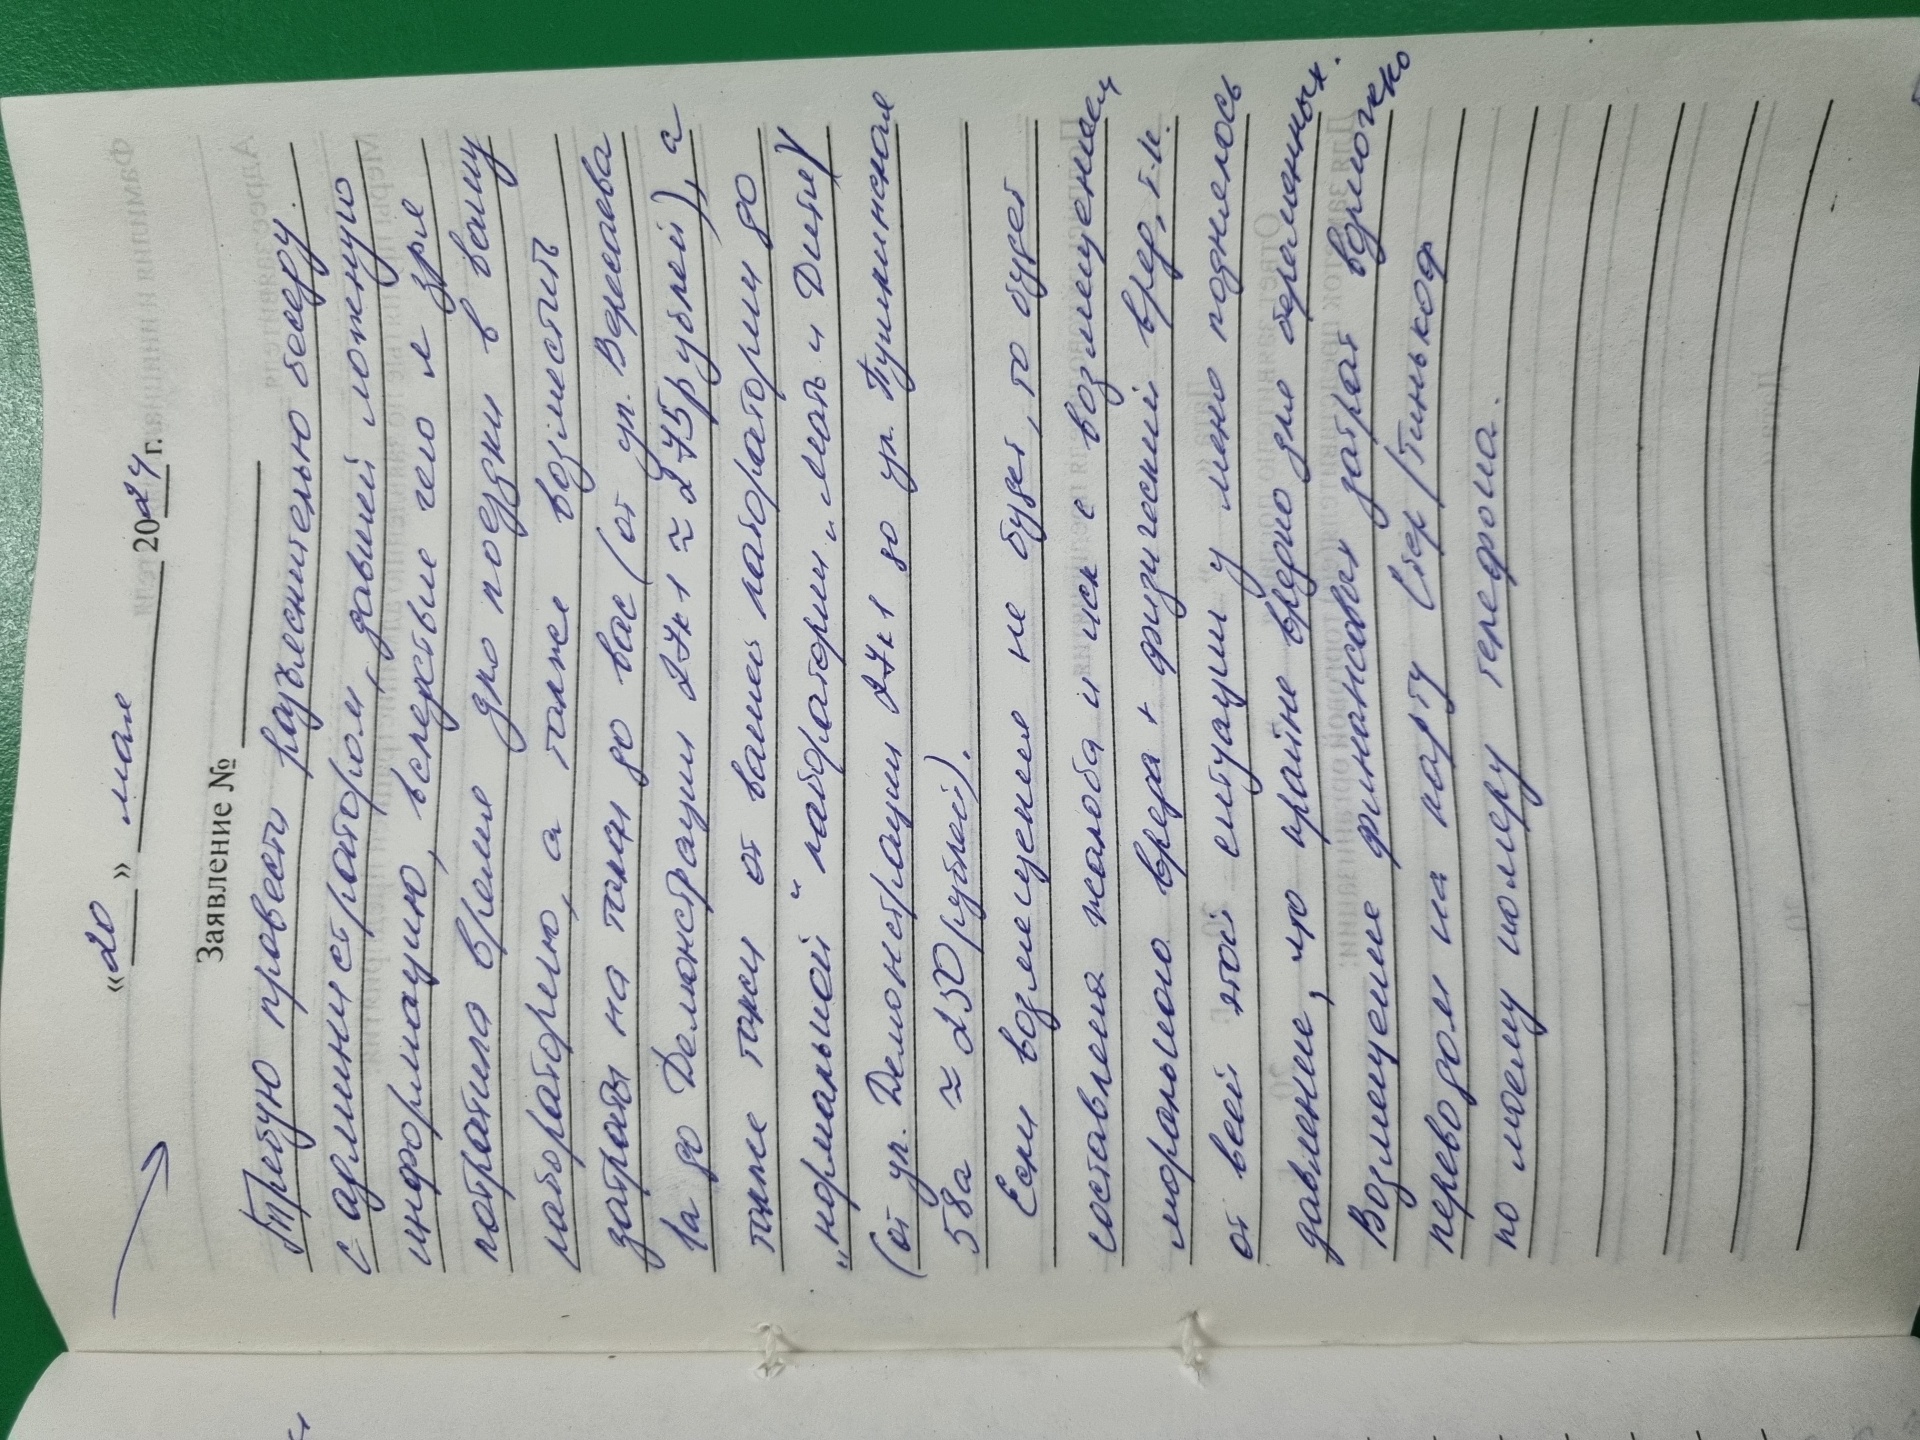 «20» мая 2024 г.
Заявление №
Требую провести разъяснительную беседу
с администратором, давшей ложную
информацию, вследствие чего я зря
потратила время для поездки в вашу
лабораторию, а также возместить
затраты на такси до вас (от ул. Вересаева
1а до Демонстрации 27к1 ≈ 275 рублей), а
также такси от вашей лаборатории до
"нормальной" лаборатории "Мать и Дитя"
(от ул. Демонстрации 27к1 до ул. Пушкинская
58а ≈ 250 рублей).
Если возмещения не будет, то будет
составлена жалоба и иск с возмещением
морального вреда + физический вред, т.к.
от всей этой ситуации у меня поднялось
давление, что крайне вредно для беременных.
Возмещение финансовых затрат возможно
переводом на карту Сбер/Тинькофф
по моему номеру телефона.